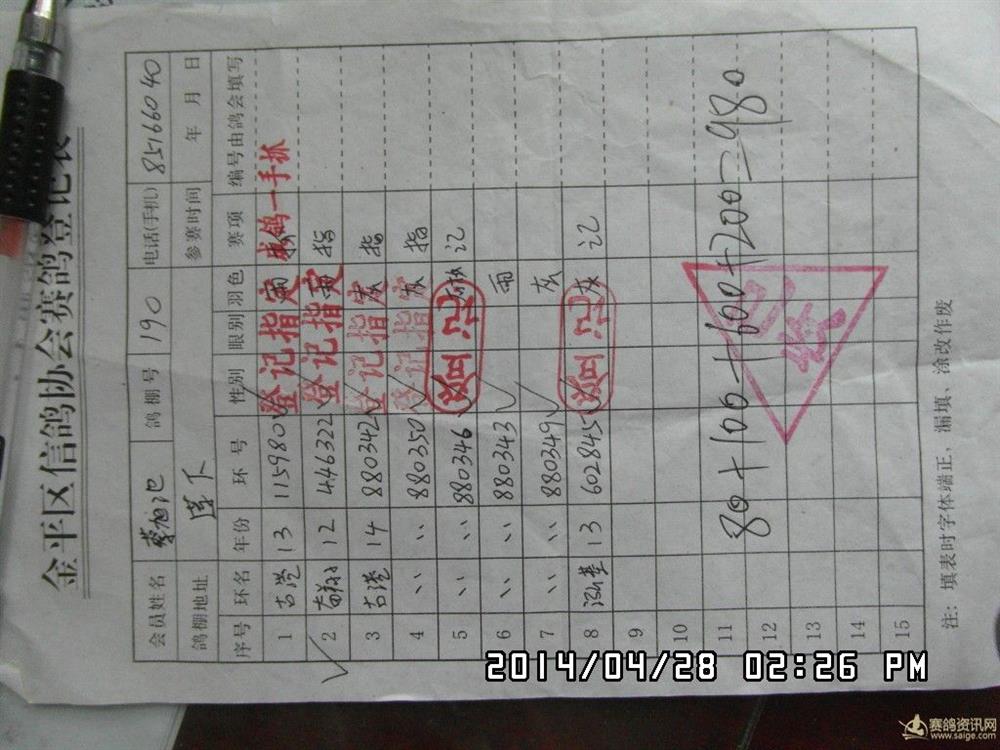 金平区信鸽协会赛鸽登记表
会员姓名 鸽棚号 190 电话(手机) 85166040
鸽棚地址 参赛时间 年 月 日
序号 环名 年份 环号 性别 眼别 羽色 赛项 编号由鸽会填写
1 古港 13 115980 登记指定 雨 成鸽一手抓
2 12 446322 登记指定 雨 指
3 古港 14 880342 登记指定 灰 指
4 〃 〃 880350 登记指定 灰 指
5 〃 〃 880346 记
6 〃 〃 880343 雨
7 〃 〃 880349 灰
8 13 602845 灰 记
9
10
11
12
13
14
15
80+100+600+200=980
已收
注：填表时字体端正，漏填、涂改作废
2014/04/28 02:26 PM
赛鸽资讯网
www.saige.com